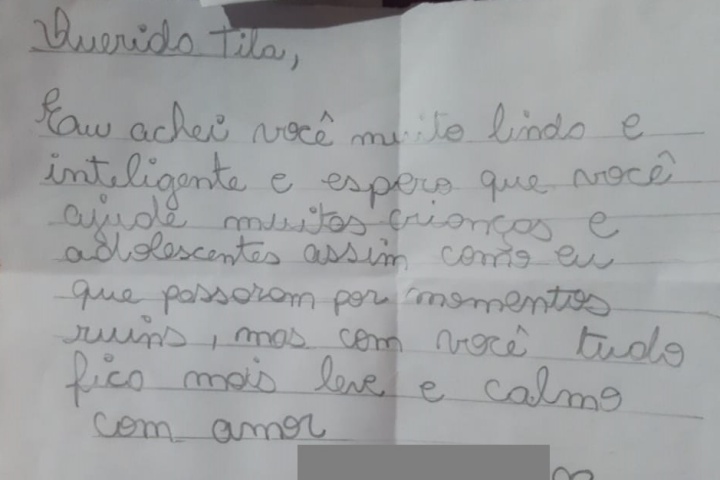 Querido Tila,
Eu achei você muito lindo e
inteligente e espero que você
ajude muitas crianças e
adolescentes assim como eu
que passaram por momentos
ruins, mas com você tudo
fica mais leve e calmo
com amor